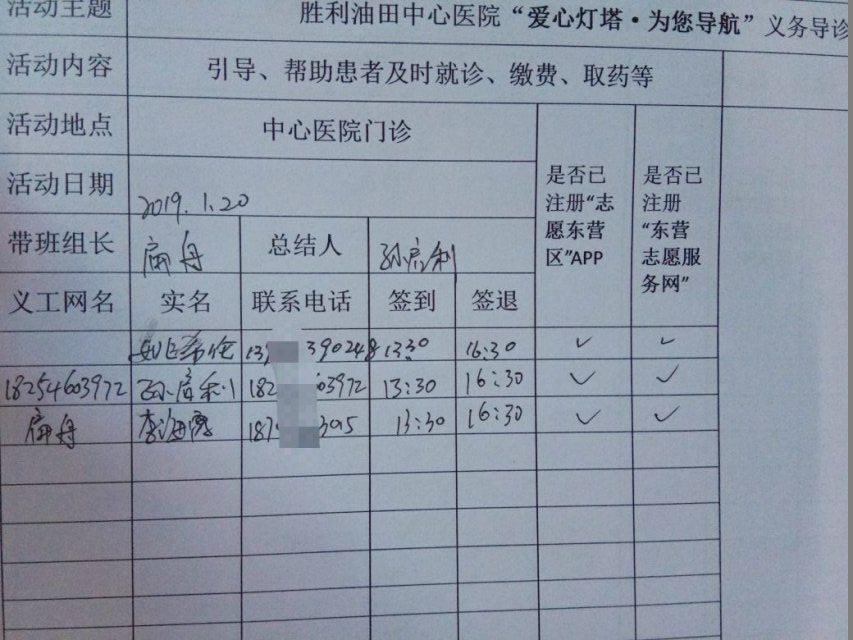 活动主题 胜利油田中心医院“爱心灯塔·为您导航”义务导诊
活动内容 引导、帮助患者及时就诊、缴费、取药等
活动地点 中心医院门诊
活动日期 2019.1.20
是否已注册“志愿东营区”APP
是否已注册“东营志愿服务网”
带班组长 扁舟 总结人
义工网名 实名 联系电话 签到 签退
13 390248 13:30 16:30 ✓ ✓
18254603972 182 603972 13:30 16:30 ✓ ✓
扁舟 187 395 13:30 16:30 ✓ ✓